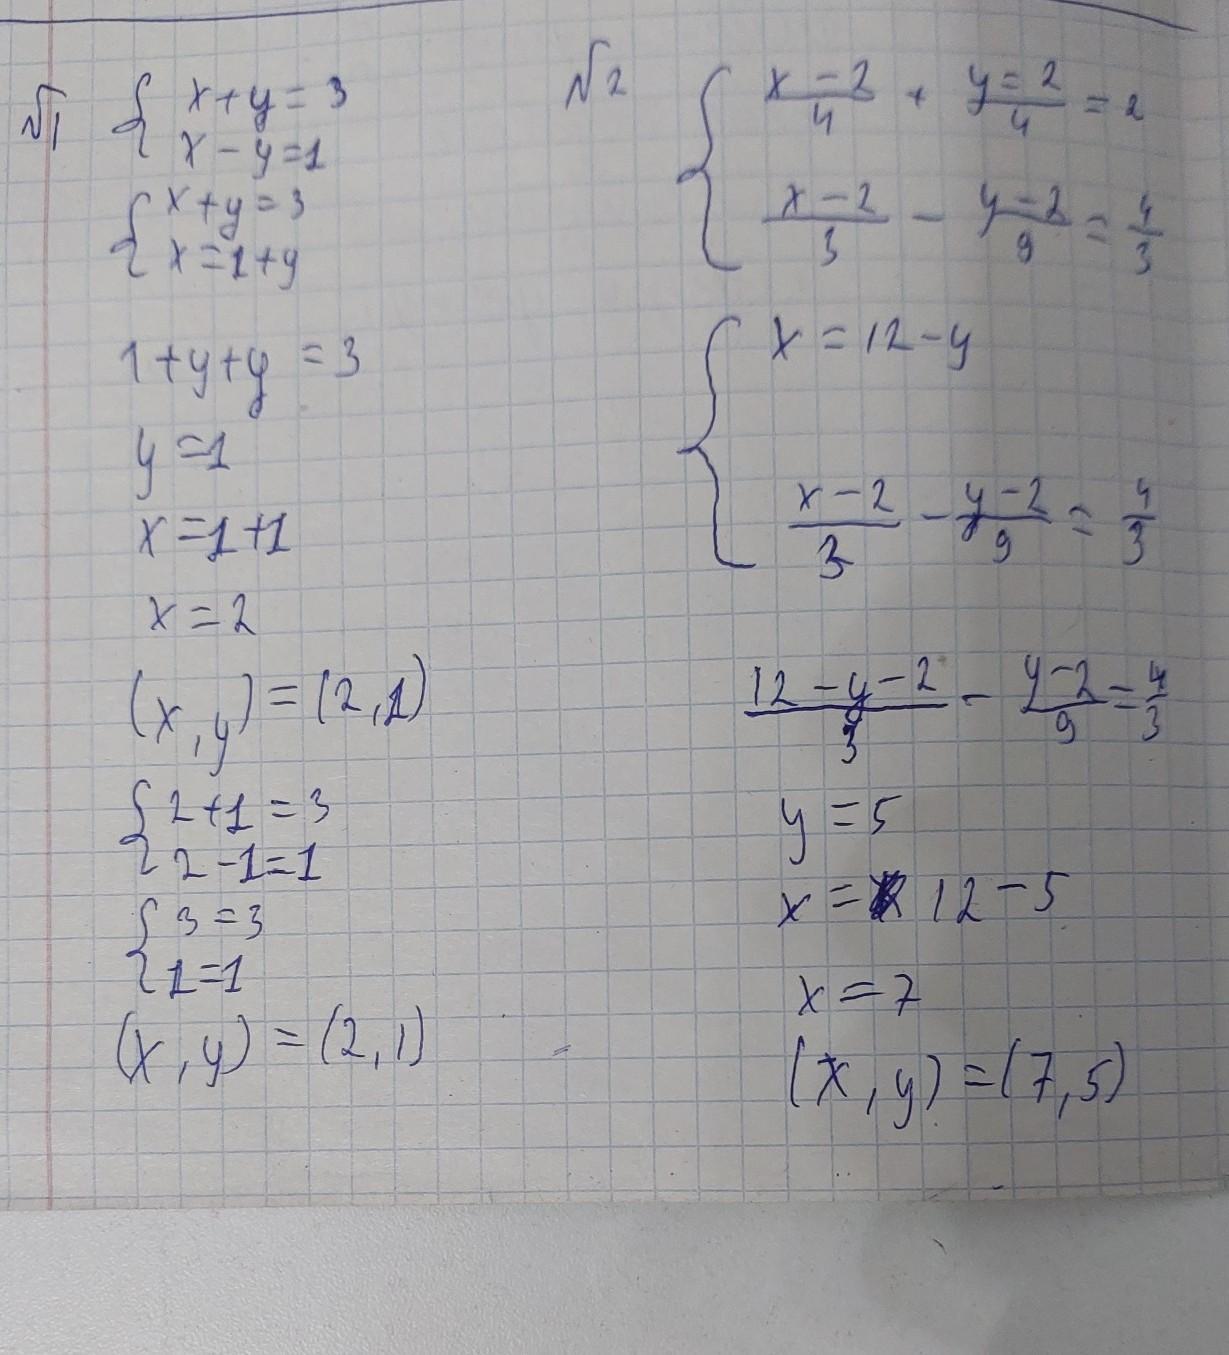 №1
{ x+y=3
x-y=1
{ x+y=3
x=1+y
1+y+y=3
y=1
x=1+1
x=2
(x,y)=(2,1)
{ 2+1=3
2-1=1
{ 3=3
1=1
(x,y)=(2,1)
№2
{ \frac{x-2}{4} + \frac{y=2}{4} = 2
\frac{x-2}{3} - \frac{y-2}{9} = \frac{4}{3}
{ x=12-y
\frac{x-2}{3} - \frac{y-2}{9} = \frac{4}{3}
\frac{12-y-2}{3} - \frac{y-2}{9} = \frac{4}{3}
y=5
x= 12-5
x=7
(x,y)=(7,5)